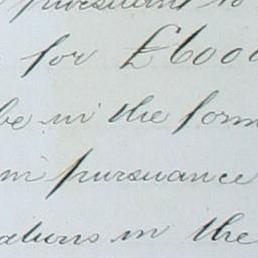 pursuant to
for £6000
be in the form
in pursuance
ations in the